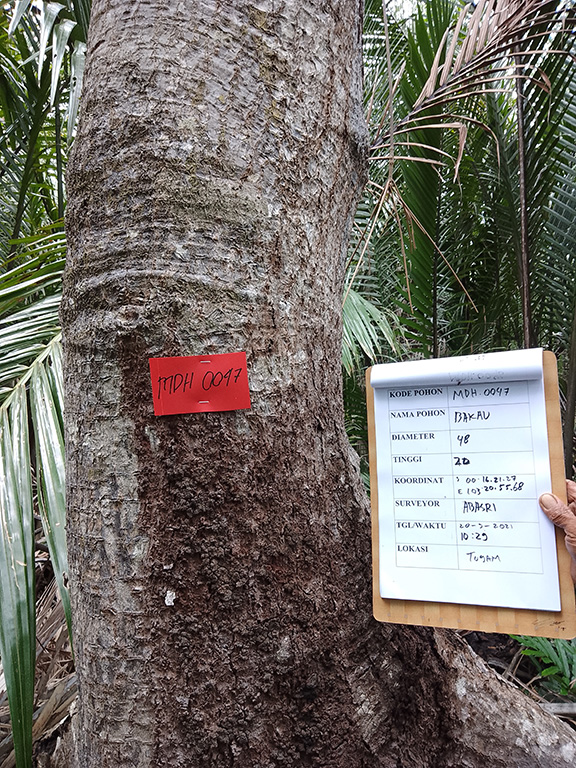 MDH 0047
KODE POHON MDH 0047
NAMA POHON BAKAU
DIAMETER 48
TINGGI 20
KOORDINAT S 00.16.21.27
E 103 20.55.68
SURVEYOR ABASRI
TGL/WAKTU 20-3-2021
10:29
LOKASI